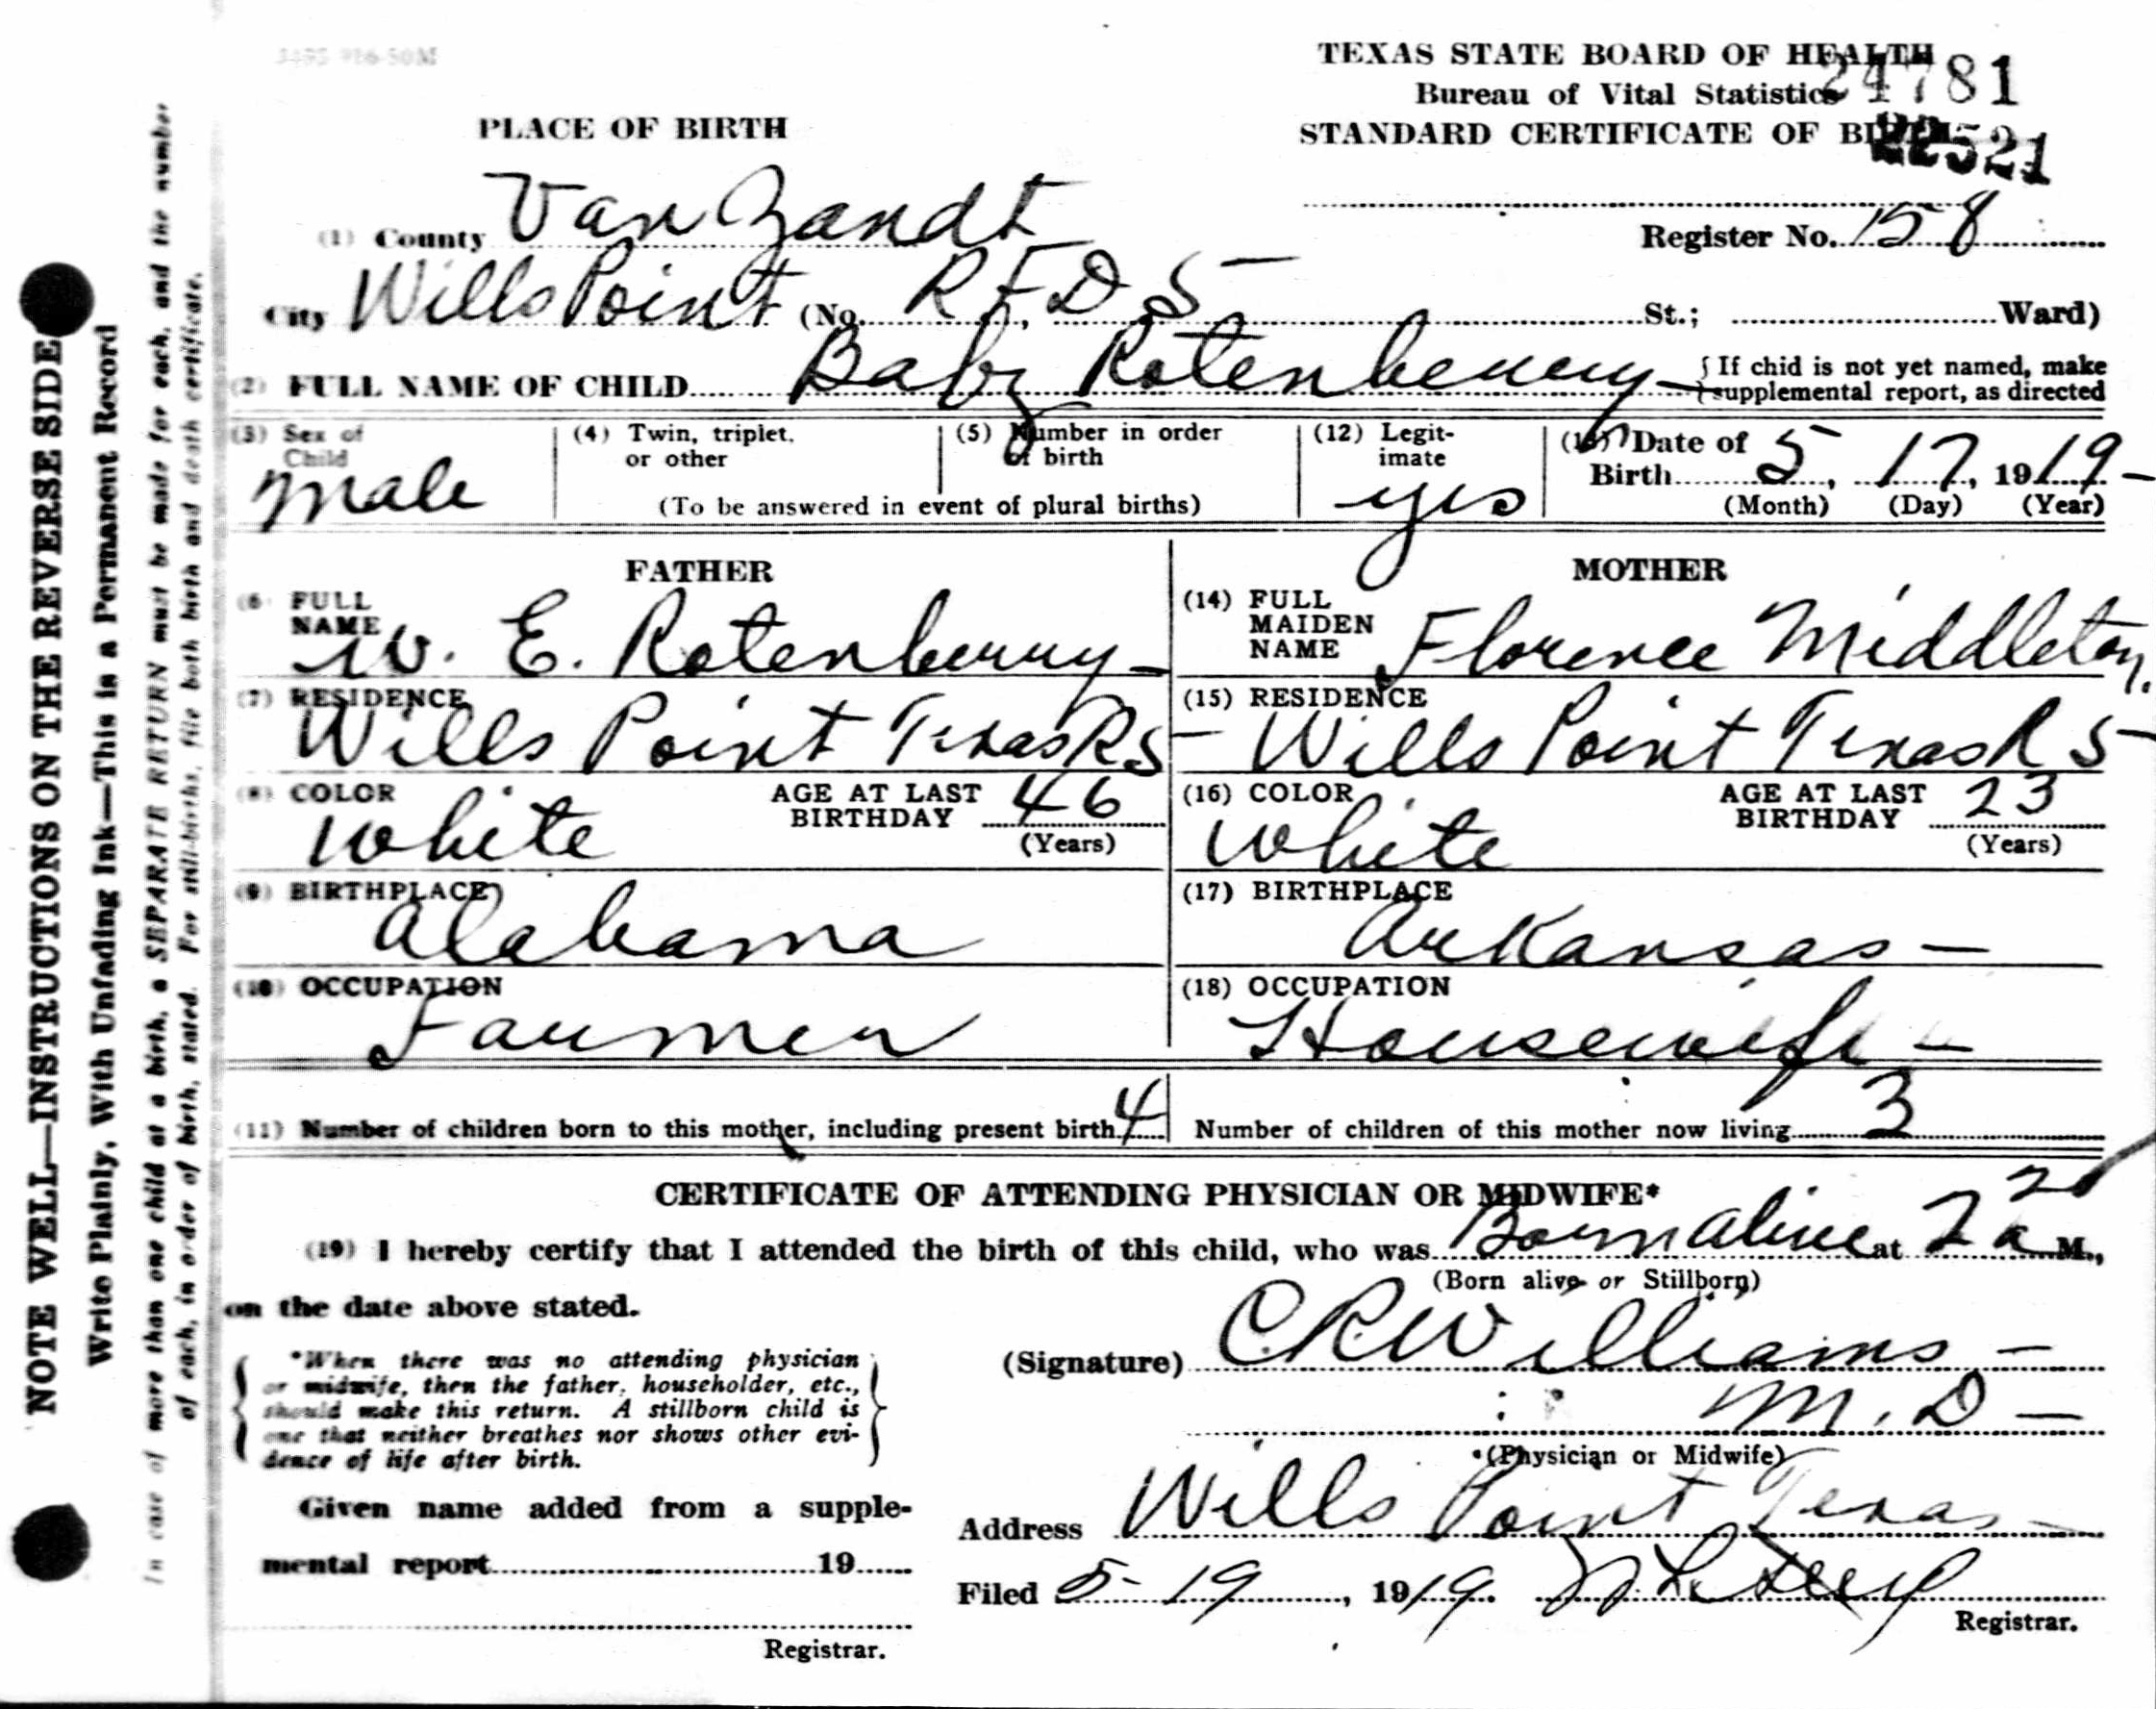 TEXAS STATE BOARD OF HEALTH
Bureau of Vital Statistics
24781
STANDARD CERTIFICATE OF BIRTH
22521
PLACE OF BIRTH
(1) County Van Zandt
Register No. 158
City Wills Point (No. R F D 5 St.; Ward)
(2) FULL NAME OF CHILD Baby Rotenberry
If chid is not yet named, make
supplemental report, as directed
(3) Sex of Child
male
(4) Twin, triplet, or other
(5) Number in order of birth
(To be answered in event of plural births)
(12) Legit-imate
yes
Date of Birth 5, 17, 1919-
(Month) (Day) (Year)
FATHER
(6) FULL NAME
W. E. Rotenberry-
(7) RESIDENCE
Wills Point Texas R5-
(8) COLOR
White
AGE AT LAST BIRTHDAY 46
(Years)
(9) BIRTHPLACE
Alabama
(10) OCCUPATION
Farmer
MOTHER
(14) FULL MAIDEN NAME Florence Middleton.
(15) RESIDENCE
Wills Point Texas R 5-
(16) COLOR
White
AGE AT LAST BIRTHDAY 23
(Years)
(17) BIRTHPLACE
Arkansas-
(18) OCCUPATION
Housewife-
(11) Number of children born to this mother, including present birth 4
Number of children of this mother now living 3
CERTIFICATE OF ATTENDING PHYSICIAN OR MIDWIFE*
(19) I hereby certify that I attended the birth of this child, who was Born alive at 2 20 a M.,
(Born alive or Stillborn)
on the date above stated.
*When there was no attending physician
or midwife, then the father, householder, etc.,
should make this return. A stillborn child is
one that neither breathes nor shows other evi-
dence of life after birth.
(Signature) C R Williams-
M. D-
(Physician or Midwife)
Given name added from a supple-
mental report 19
Registrar.
Address Wills Point Texas-
Filed 5-19, 1919.
Registrar.
NOTE WELL—INSTRUCTIONS ON THE REVERSE SIDE
Write Plainly, With Unfading Ink—This is a Permanent Record
In case of more than one child at a birth, a SEPARATE RETURN must be made for each, and the number
of each, in order of birth, stated. For still-births, file both birth and death certificate.